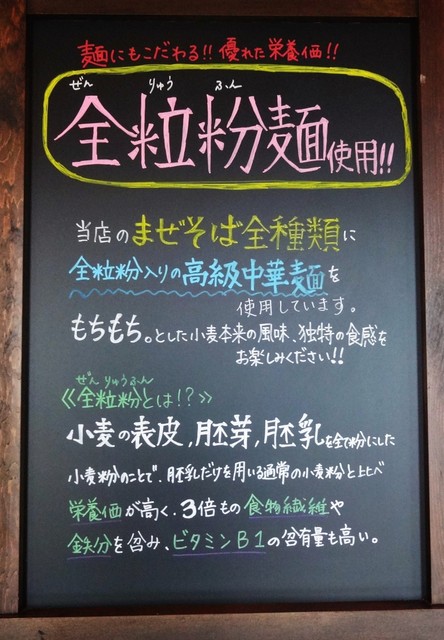 麺にもこだわる!! 優れた栄養価!!
ぜん りゅう ふん
全粒粉麺使用!!
当店のまぜそば全種類に
全粒粉入りの高級中華麺を
使用しています。
もちもち。とした小麦本来の風味、独特の食感を
お楽しみください!!
ぜんりゅうふん
《全粒粉とは!?》
小麦の表皮,胚芽,胚乳を全て粉にした
小麦粉のことで、胚乳だけを用いる通常の小麦粉と比べ
栄養価が高く、3倍もの食物繊維や
鉄分を含み、ビタミンB1の含有量も高い。